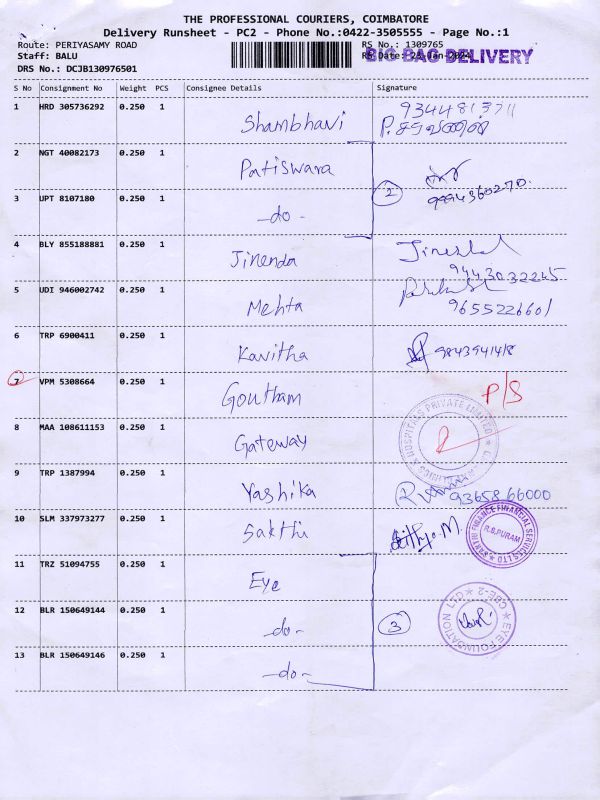 THE PROFESSIONAL COURIERS, COIMBATORE
Delivery Runsheet - PC2 - Phone No.:0422-3505555 - Page No.:1
Route: PERIYASAMY ROAD
RS No.: 1309765
Staff: BALU
BIG BAG DELIVERY
DRS No.: DCJB130976501
S No Consignment No Weight PCS Consignee Details Signature
1 HRD 305736292 0.250 1 Shambhavi
P. சரவணன்
2 NGT 40082173 0.250 1 Patiswara
2 9994360270.
3 UPT 8107180 0.250 1 -do-
4 BLY 855188881 0.250 1 Jinenda
9443032245
5 UDI 946002742 0.250 1 Mehta
9655226601
6 TRP 6900411 0.250 1 Kavitha 9843941418
7 VPM 5308664 0.250 1 Goutham P/S
8 MAA 108611153 0.250 1 Gateway
HOSPITALS PRIVATE LIMITED
9 TRP 1387994 0.250 1 Yashika 93658 66000
10 SLM 337973277 0.250 1 Sakthi
FINANCE FINANCIAL SERVICES LTD
R.S.PURAM
11 TRZ 51094755 0.250 1 Eye
12 BLR 150649144 0.250 1 -do- 3
EYE FOUNDATION CLT CBE-2
13 BLR 150649146 0.250 1 -do-